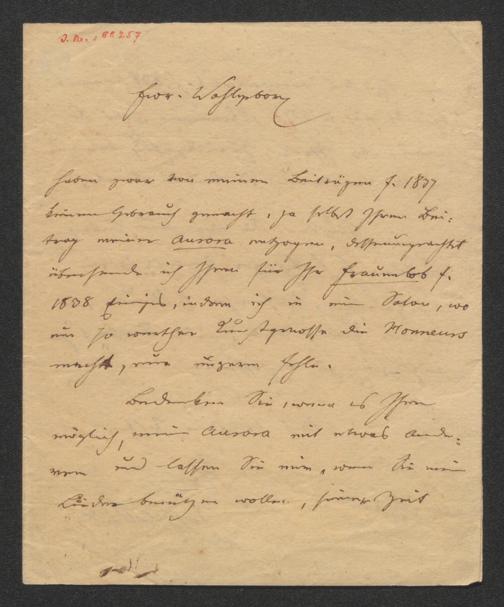 J. N. 88257
Euer Wohlgeboren
haben zwar von meinen Beiträgen f. 1837
keinen Gebrauch gemacht, ja selbst Ihren Bei-
trag meiner Aurora entzogen, dessenungeachtet
übersende ich Ihnen für Ihr Frauenlob f.
1838 Einiges, indem ich in einem Salon, wo
ein so werther Kunstgenosse die Honneurs
macht, nur ungern fehle.
Bedenken Sie, wenn es Ihnen
möglich, meine Aurora mit etwas Ande-
rem und lassen Sie mir, wenn Sie meine
Lieder benützen wollen, seiner Zeit